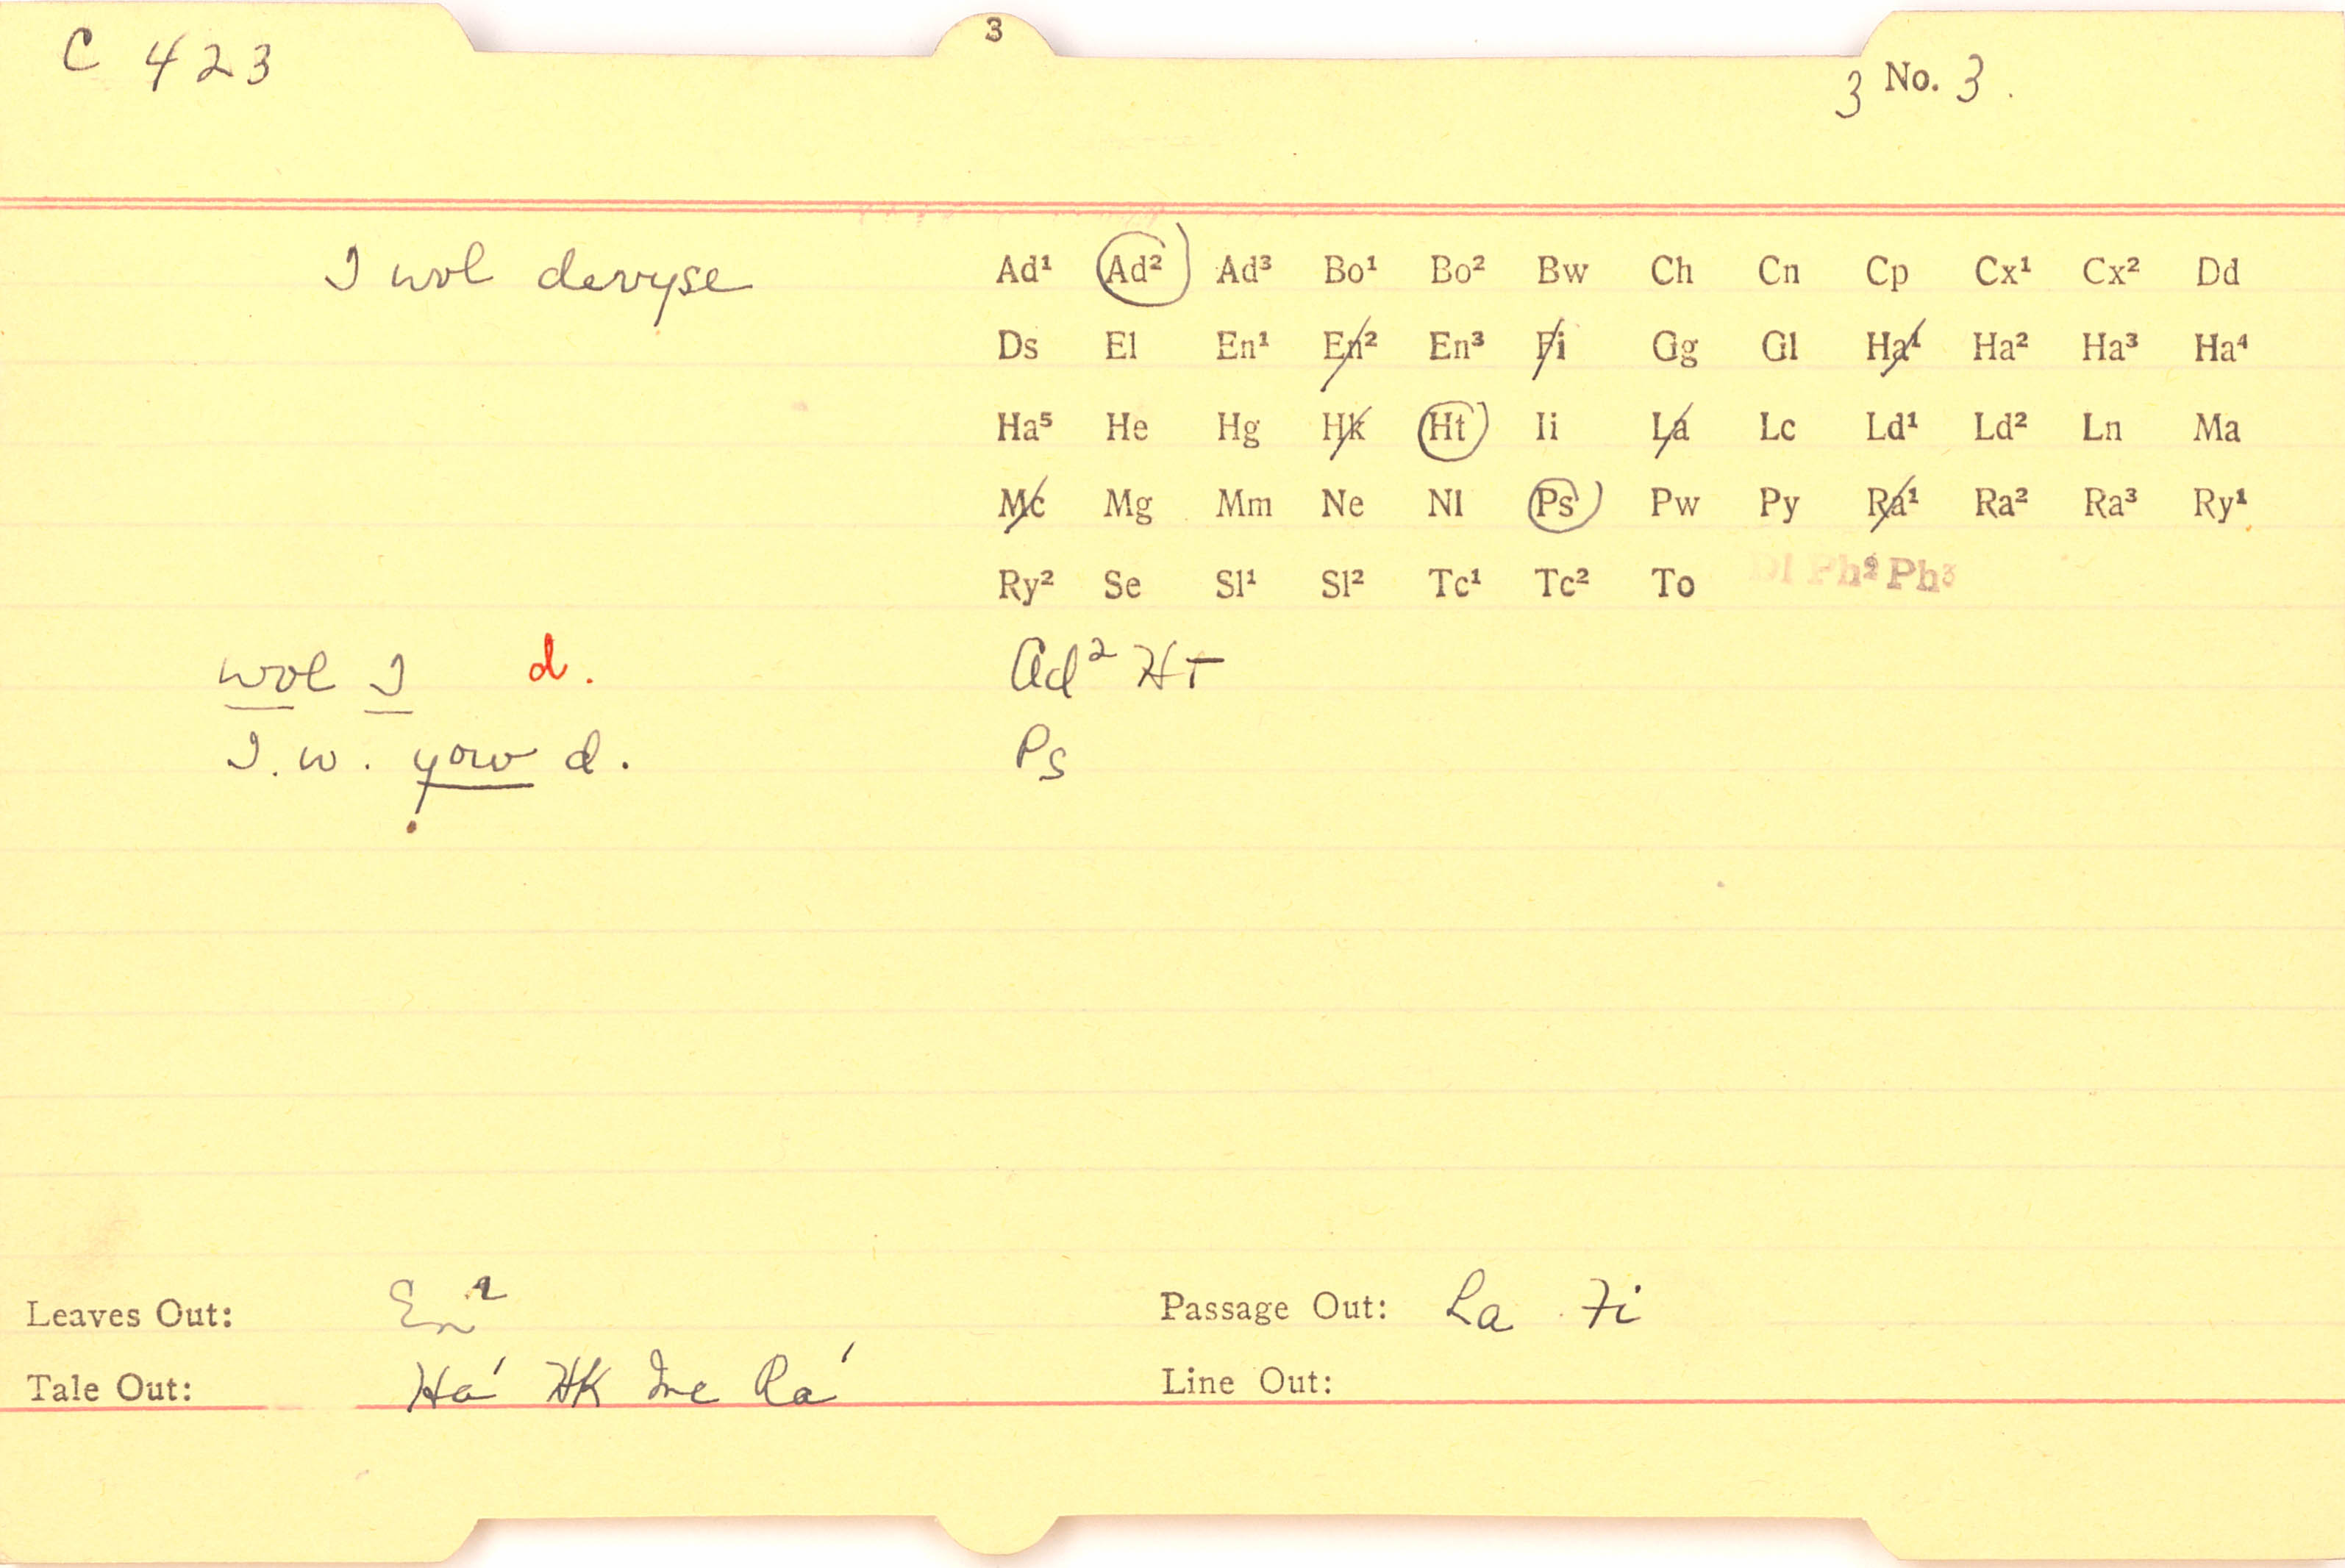 3
C 423
3 No. 3.
I wol devyse
Ad¹ Ad² Ad³ Bo¹ Bo² Bw Ch Cn Cp Cx¹ Cx² Dd
Ds El En¹ En² En³ Fi Gg Gl Ha¹ Ha² Ha³ Ha⁴
Ha⁵ He Hg Hk Ht Ii La Lc Ld¹ Ld² Ln Ma
Mc Mg Mm Ne Nl Ps Pw Py Ra¹ Ra² Ra³ Ry¹
Ry² Se Sl¹ Sl² Tc¹ Tc² To Dl Ph² Ph³
wol I d. Ad² Ht
I. w. yow d. Ps
Leaves Out: En²
Passage Out: La Fi
Tale Out: Ha¹ Hk Mc Ra¹
Line Out: